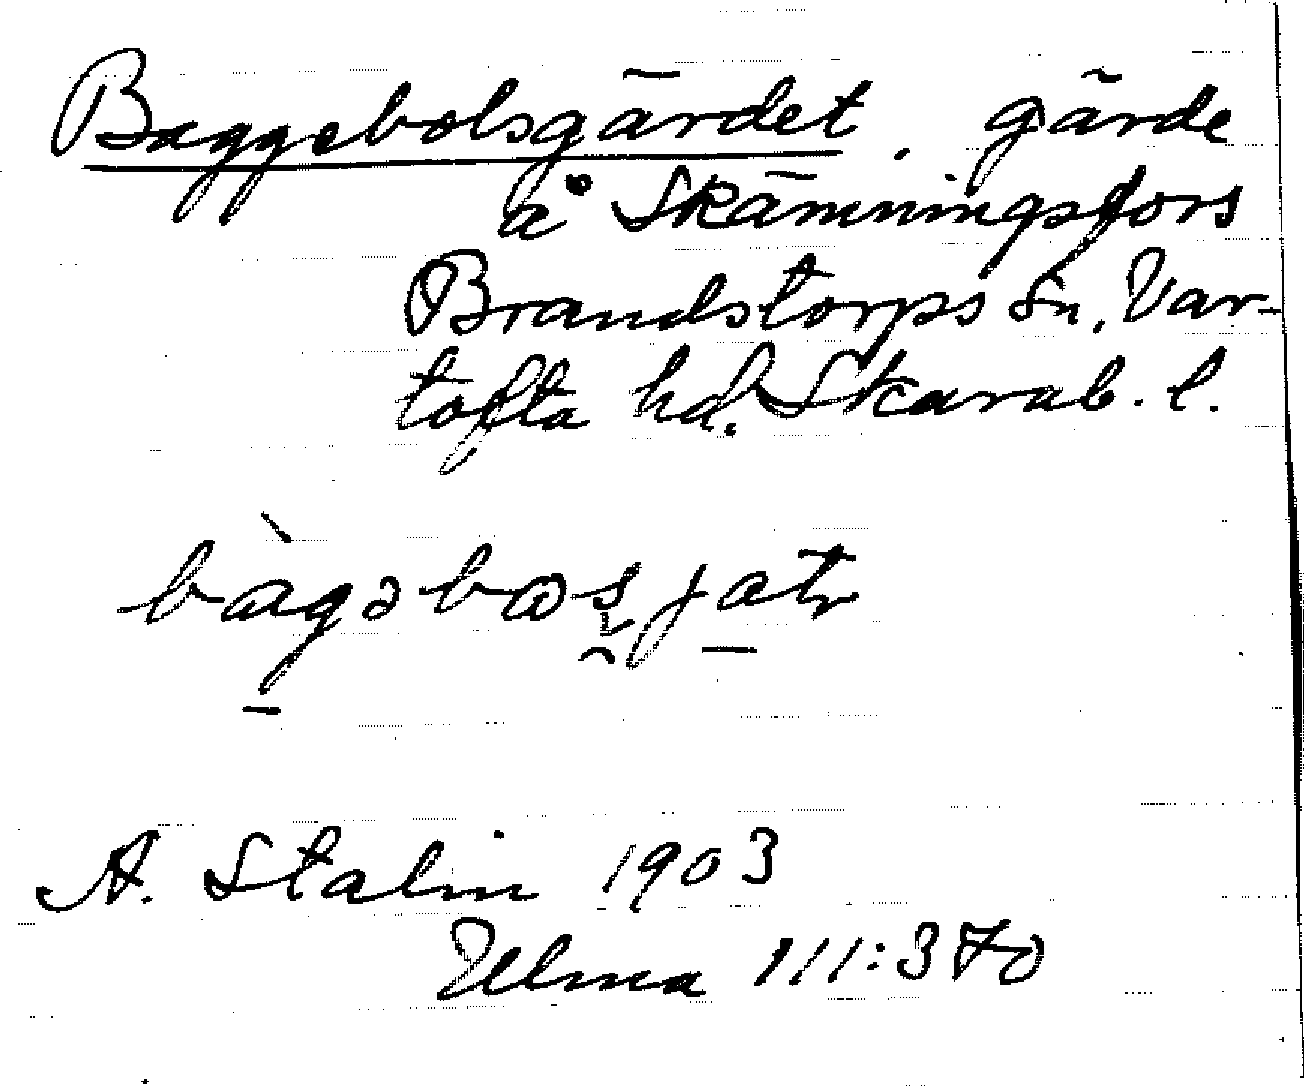 Baggebolsgärdet, gärde
å Skämningsfors
Brandstorps sn, Var-
tofta hd. Skarab. l.
bàgəbos̨jatn
A. Stalin 1903
Ulma 111:370